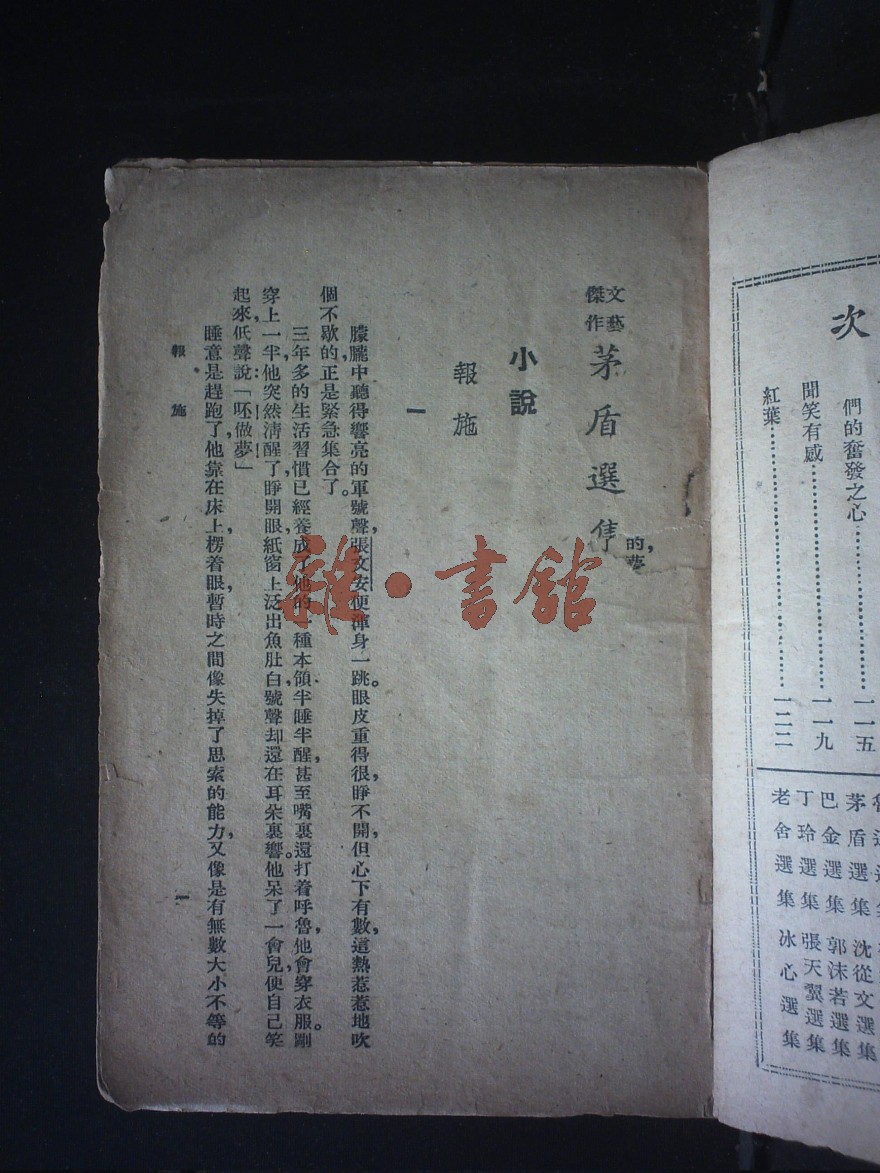 次
們的奮發之心……………一一五
聞笑有感……………一一九
紅葉……………一二二
茅盾選集 沈從文選集
巴金選集 郭沫若選集
丁玲選集 張天翼選集
老舍選集 冰心選集
的夢
文藝傑作 茅盾選
小說
報施
一
朦朧中,聽得響亮的軍號聲,張文安便渾身一跳。眼皮重得很,睜不開,但心下有數,這熱惹惹地吹
個不歇的,正是緊急集合了。
三年多的生活習慣,已經養成了他的一種本領,半睡半醒,甚至嘴裏還打着呼魯,他會穿衣服。剛
穿上一半,他突然清醒了,睜開眼,紙窗上泛出魚肚白,號聲却還在耳朵裏響。他呆了一會兒,便自己笑
起來,低聲說:「呸,做夢!」
睡意是趕跑了,他靠在床上,楞着眼,暫時之間像失掉了思索的能力,又像是有無數大小不等的
報施
一
雜·書館